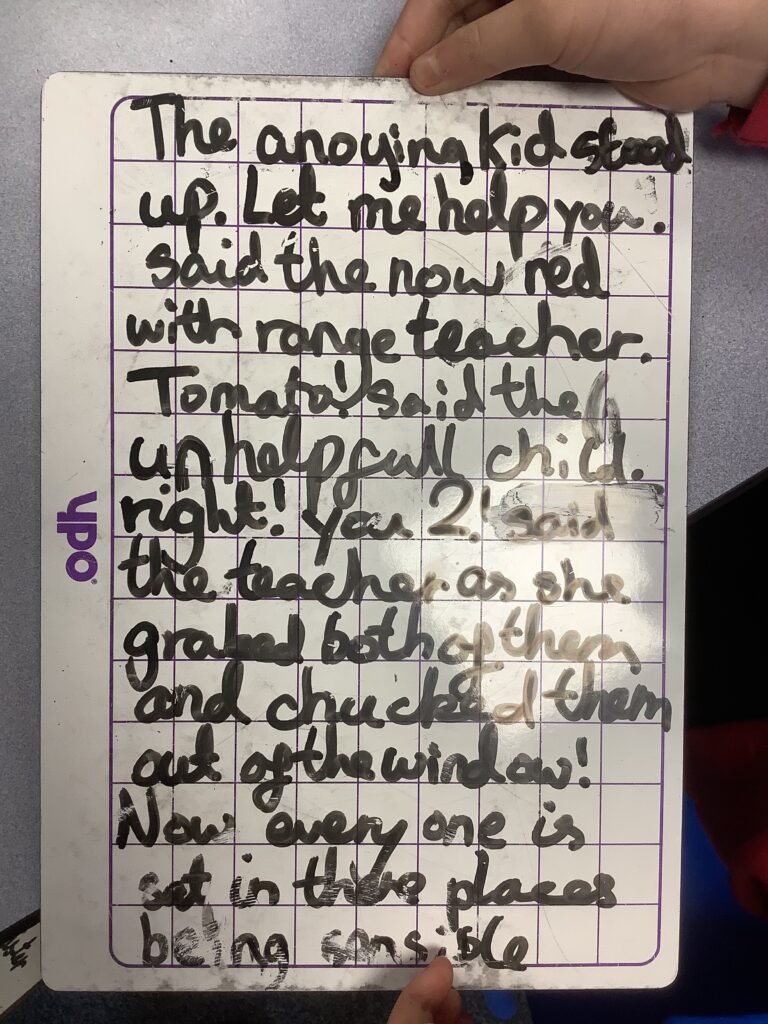 The anoying kid stood
up. Let me help you.
said the now red
with range teacher.
Tomato! said the
unhelpfull child.
right! you 2! said
the teacher as she
grabed both of them
and chucked them
out of the window!
Now every one is
sat in there places
being sensible
ypo